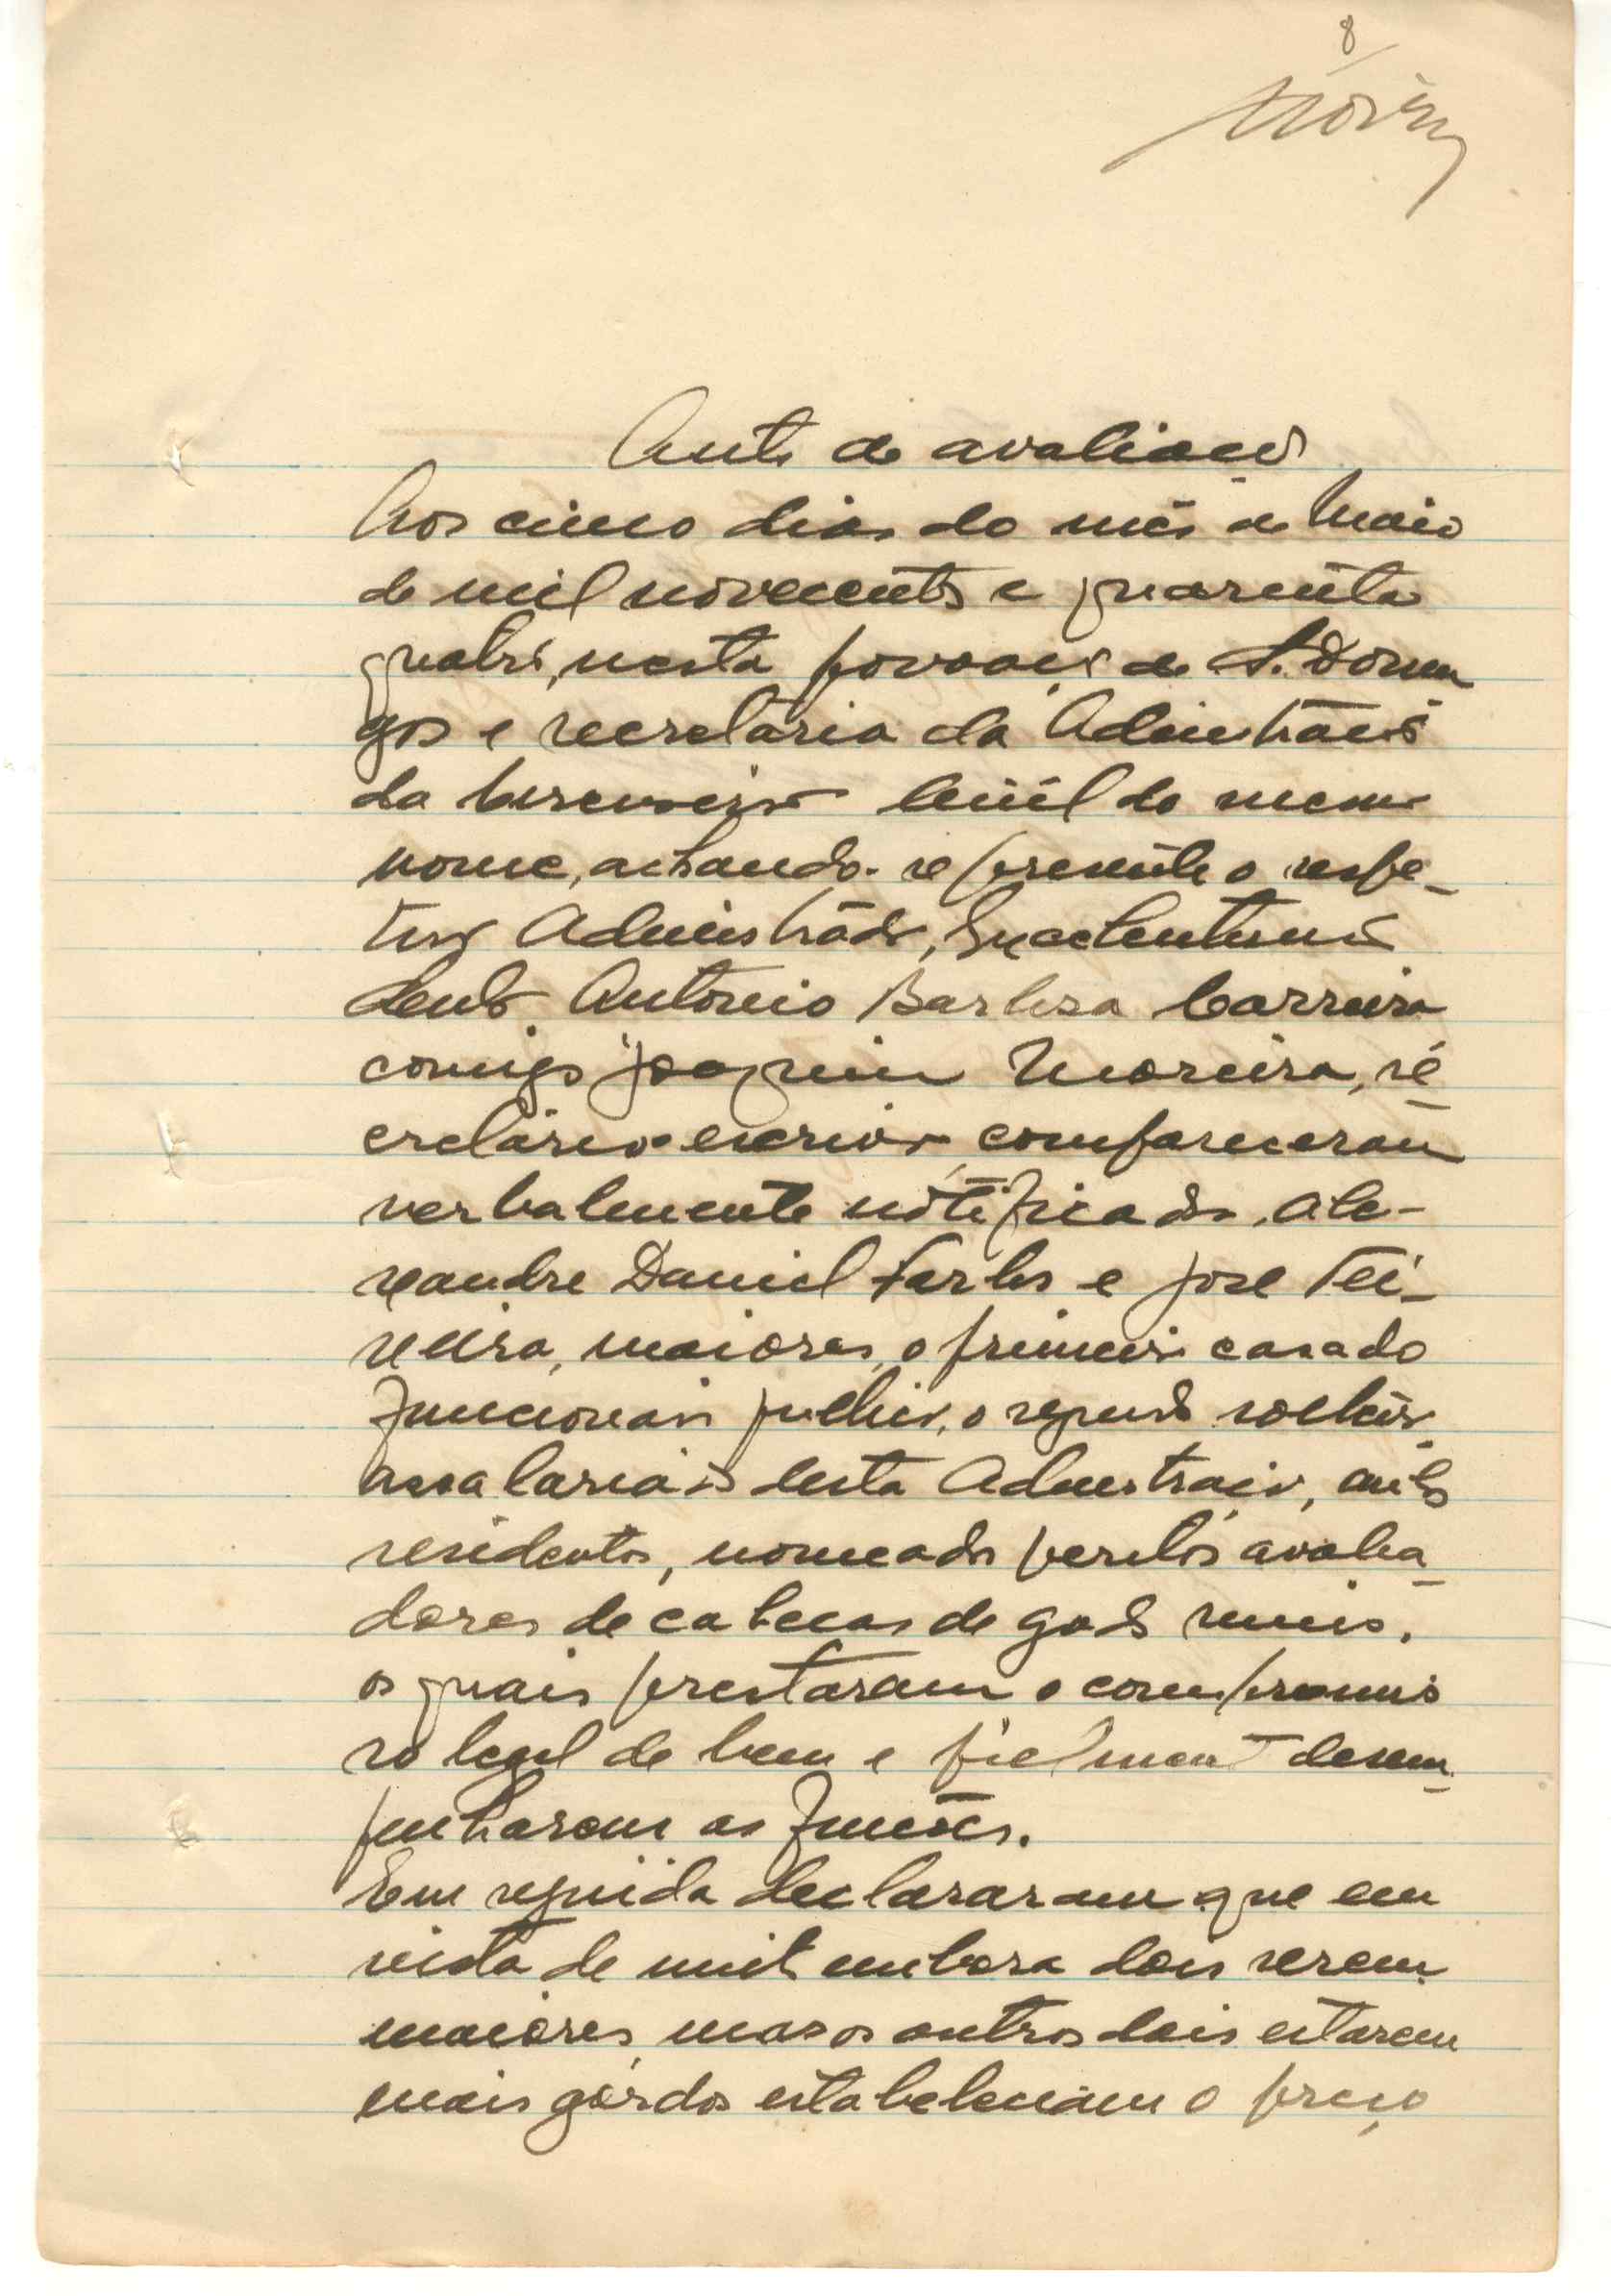 8
Auto de avaliação
Aos cinco dias do mês de Maio
de mil novecentos e quarenta
quatro, nesta povoação de S. Domin
gos e secretaria da Administração
da Circunscrição Civil do mesmo
nome, achando-se presente o respe-
tivo Administrador, Excelentissimo
Senhor António Barbosa Carreira
comigo Joaquim Moreira, se
cretário escrivão compareceram
verbalmente notificados, Ale-
xandre Daniel Forbes e José Tei-
xeira, maiores, o primeiro casado
funcionario publico, o segundo solteiro
assalariado desta Administração, ambos
residentes, nomeados peritos avalia
dores de cabeças de gado
os quais prestaram o compromis
so legal de bem e fielmente desem
penharem as funções.
Em seguida declararam que em
vista de embora dois serem
maiores, mas os outros dois estarem
mais gordos estabeleciam o preço